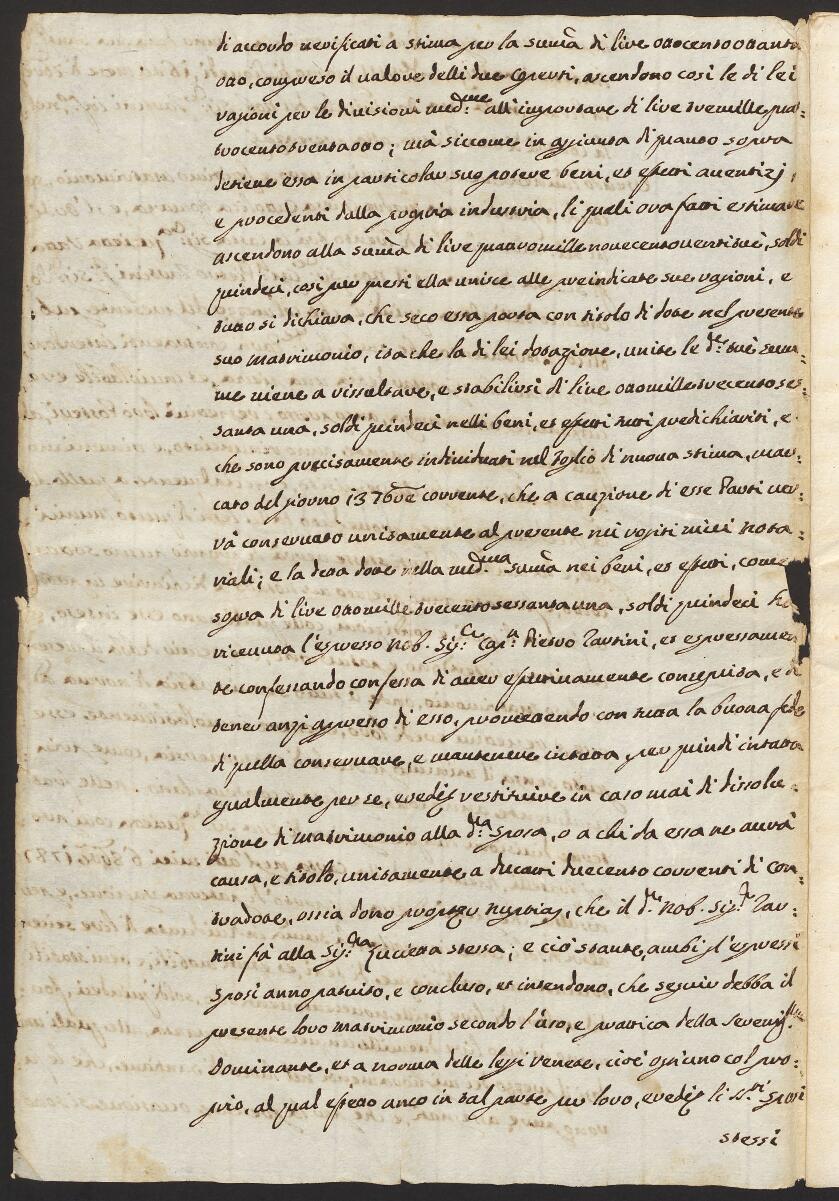 di accordo verificati a stima per la suma di lire ottocentoottanta
otto, compreso il valore delli due Coperti, ascendono così le di lei
ragioni per le divisioni med.me all'importare di lire tremille quat=
trocentotrentaotto; mà siccome in aggiunta di quanto sopra
detiene essa in particolar suo potere beni, et effetti aventizj,
e procedenti dalla propria industria, li quali ora fatti estimare
ascendono alla suma di lire quattromille novecentoventitrè, soldi
quindeci, così pur questi ella unisce alle preindicate sue ragioni, e
tutto si dichiara, che seco essa porta con titolo di dote nel presente
suo matrimonio, ita che la di lei dotazione, unite le d.te trè sum=
me viene a rissultare, e stabilirsi di lire ottomille trecentoses=
santa una, soldi quindeci nelli beni, et effetti tutti predichiariti, e
che sono precisamente individuati nel foglio di nuova stima, mar=
cato del giorno 13 7bre corrente, che a cauzione di esse Parti ver=
rà conservato unitamente al presente nei rogiti miei nota=
riali; e la detta dote nella med.ma suma nei beni, et effetti, come
sopra di lire ottomille trecentosessanta una, soldi quindeci
ricevuta l'espresso Nob. Sig.r Cap.n Pietro Tartini, et espressamen
te confessando confessa di aver effettivamente conseguita, e di
tener anzi appresso di esso, promettendo con tutta la buona fede
di quella conservare, e mantenere intatta, per quindi intatta
egualmente per se, eredi restituire in caso mai di dissolu=
zione di matrimonio alla d.ta sposa, o a chi da essa ne avrà
causa, e titolo, unitamente a ducatti duecento correnti di con=
tradote, ossia dono propter nuptias, che il d.to Nob. Sig.r Tar=
tini fà alla Sig.ra Lucietta stessa; e ciò stante, ambi gl'espressi
sposi anno patuito, e concluso, et intendono, che seguir debba il
presente loro matrimonio secondo l'uso, e prattica della Sereniss.ma
Dominante, et a norma delle leggi venete, cioè ogniuno col pro=
prio, al qual effetto anco in tal parte per loro, eredi li ss.ri sposi
stessi